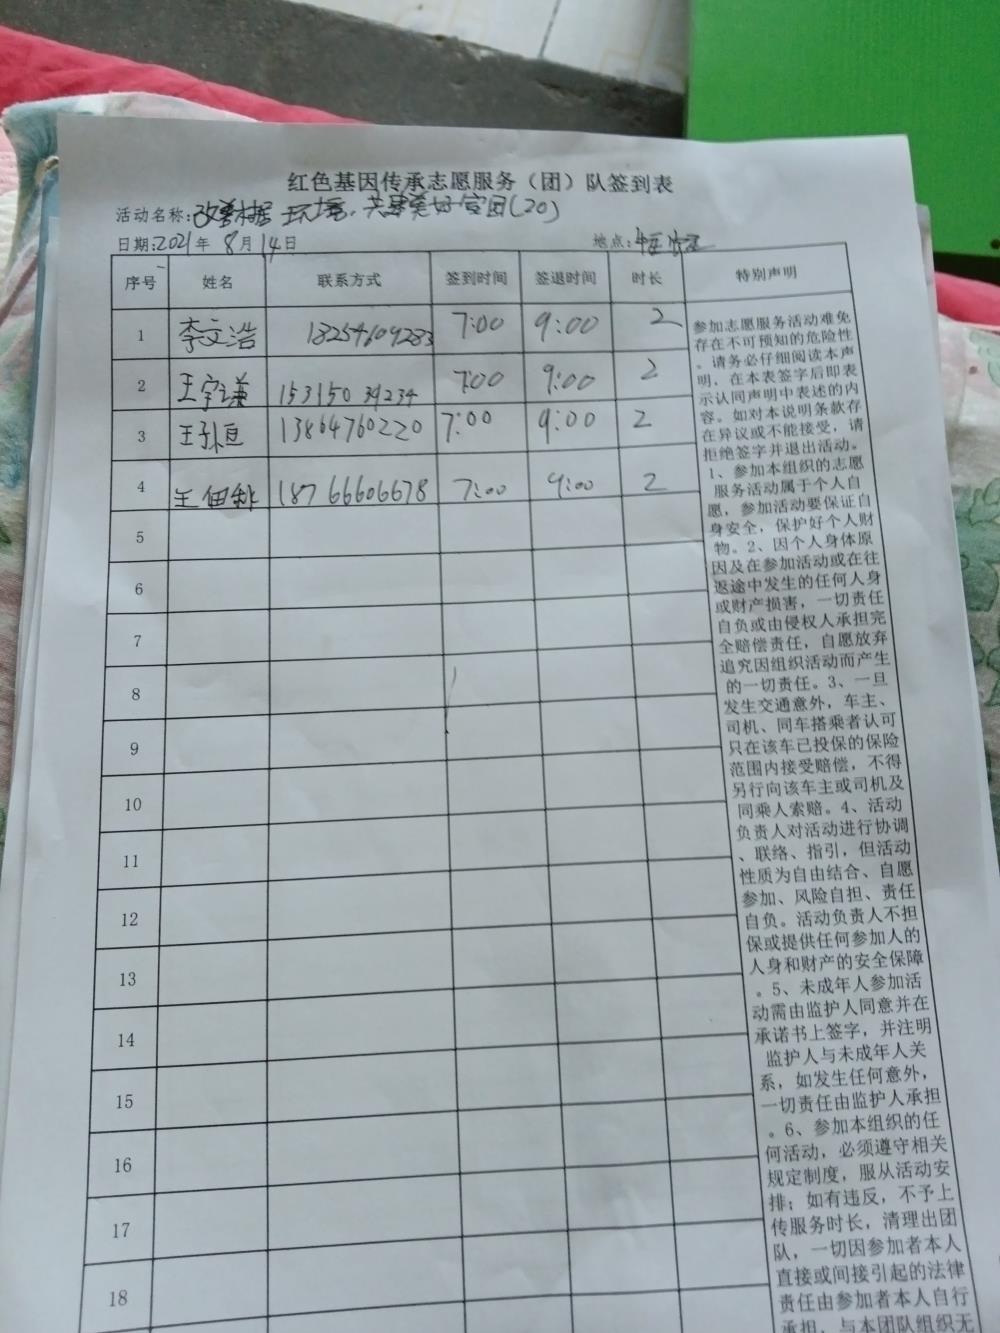 红色基因传承志愿服务（团）队签到表
活动名称:改善人居环境，共建美好家园(20)
日期:2021年 8月14日 地点:
序号 姓名 联系方式 签到时间 签退时间 时长 特别声明
1 李文浩 13254609283 7:00 9:00 2
2 王宇谦 15315039234 7:00 9:00 2
3 13864760220 7:00 9:00 2
4 18766606678 7:00 9:00 2
5
6
7
8
9
10
11
12
13
14
15
16
17
18
参加志愿服务活动难免
存在不可预知的危险性
，请务必仔细阅读本声
明，在本表签字后即表
示认同声明中表述的内
容。如对本说明条款存
在异议或不能接受，请
拒绝签字并退出活动。
1、参加本组织的志愿
服务活动属于个人自
愿，参加活动要保证自
身安全，保护好个人财
物。2、因个人身体原
因及在参加活动或在往
返途中发生的任何人身
或财产损害，一切责任
自负或由侵权人承担完
全赔偿责任，自愿放弃
追究因组织活动而产生
的一切责任。3、一旦
发生交通意外，车主、
司机、同车搭乘者认可
只在该车已投保的保险
范围内接受赔偿，不得
另行向该车主或司机及
同乘人索赔。4、活动
负责人对活动进行协调
、联络、指引，但活动
性质为自由结合、自愿
参加、风险自担、责任
自负。活动负责人不担
保或提供任何参加人的
人身和财产的安全保障
。5、未成年人参加活
动需由监护人同意并在
承诺书上签字，并注明
监护人与未成年人关
系，如发生任何意外，
一切责任由监护人承担
。6、参加本组织的任
何活动，必须遵守相关
规定制度，服从活动安
排；如有违反，不予上
传服务时长，清理出团
队，一切因参加者本人
直接或间接引起的法律
责任由参加者本人自行
承担，与本团队组织无